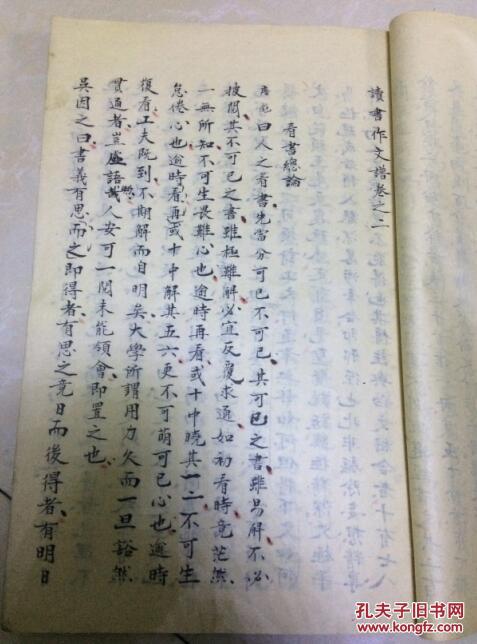 讀書作文譜卷之二
看書總論
唐彪曰人之看書先當分可已不可已其可已之書雖易解不必
披閱其不可已之書雖極難解必宜反覆求通如初看時竟茫然
一無所知不可生畏難心也逾時再看或十中曉其一二不可生
怠倦心也逾時再看或十中解其五六更不可萌可已心也逾時
復看工夫既到不期解而自明矣大學所謂用力久而一旦豁然
貫通者豈虛語哉然人安可一閱未能領會即置之也
吳因之曰書義有思而之即得者有思之竟日而後得者有明日
孔夫子旧书网
www.kongfz.com